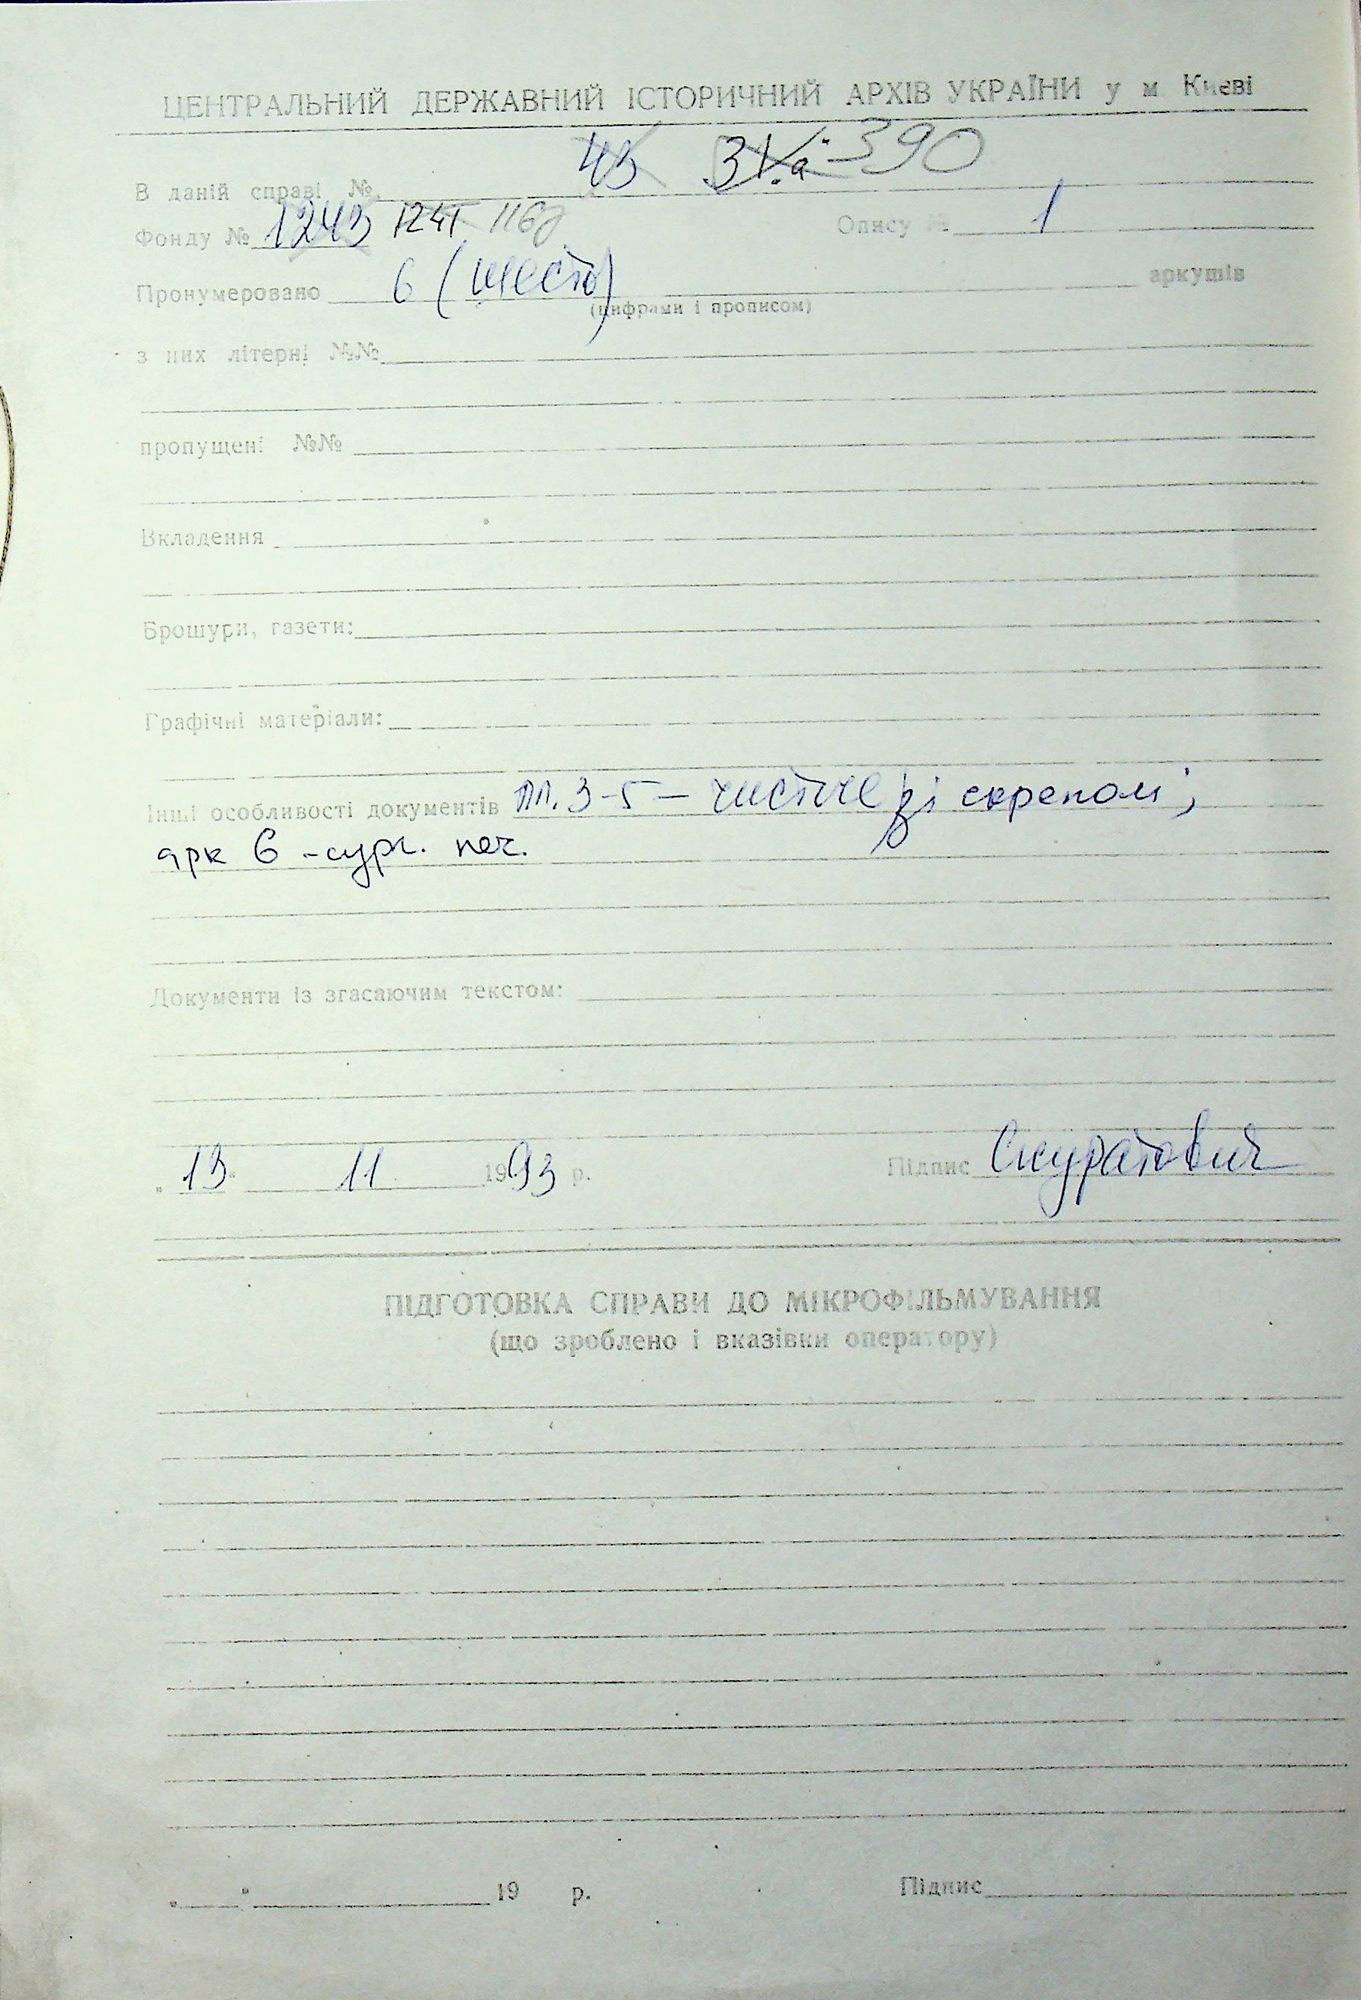 ЦЕНТРАЛЬНИЙ ДЕРЖАВНИЙ ІСТОРИЧНИЙ АРХІВ УКРАЇНИ у м. Києві
В даній справі № 43 390
Фонду № 1243 1241 Опису № 1
Пронумеровано 6 ( аркушів
(цифрами і прописом)
з них літерні №№
пропущені №№
Вкладення
Брошури, газети:
Графічні матеріали:
Інші особливості документів 3-5 –
арк 6 - сург. печ.
Документи із згасаючим текстом:
„ 13 " 11 1993 р. Підпис Скуратович
ПІДГОТОВКА СПРАВИ ДО МІКРОФІЛЬМУВАННЯ
(що зроблено і вказівки оператору)
„ " 19 р. Підпис